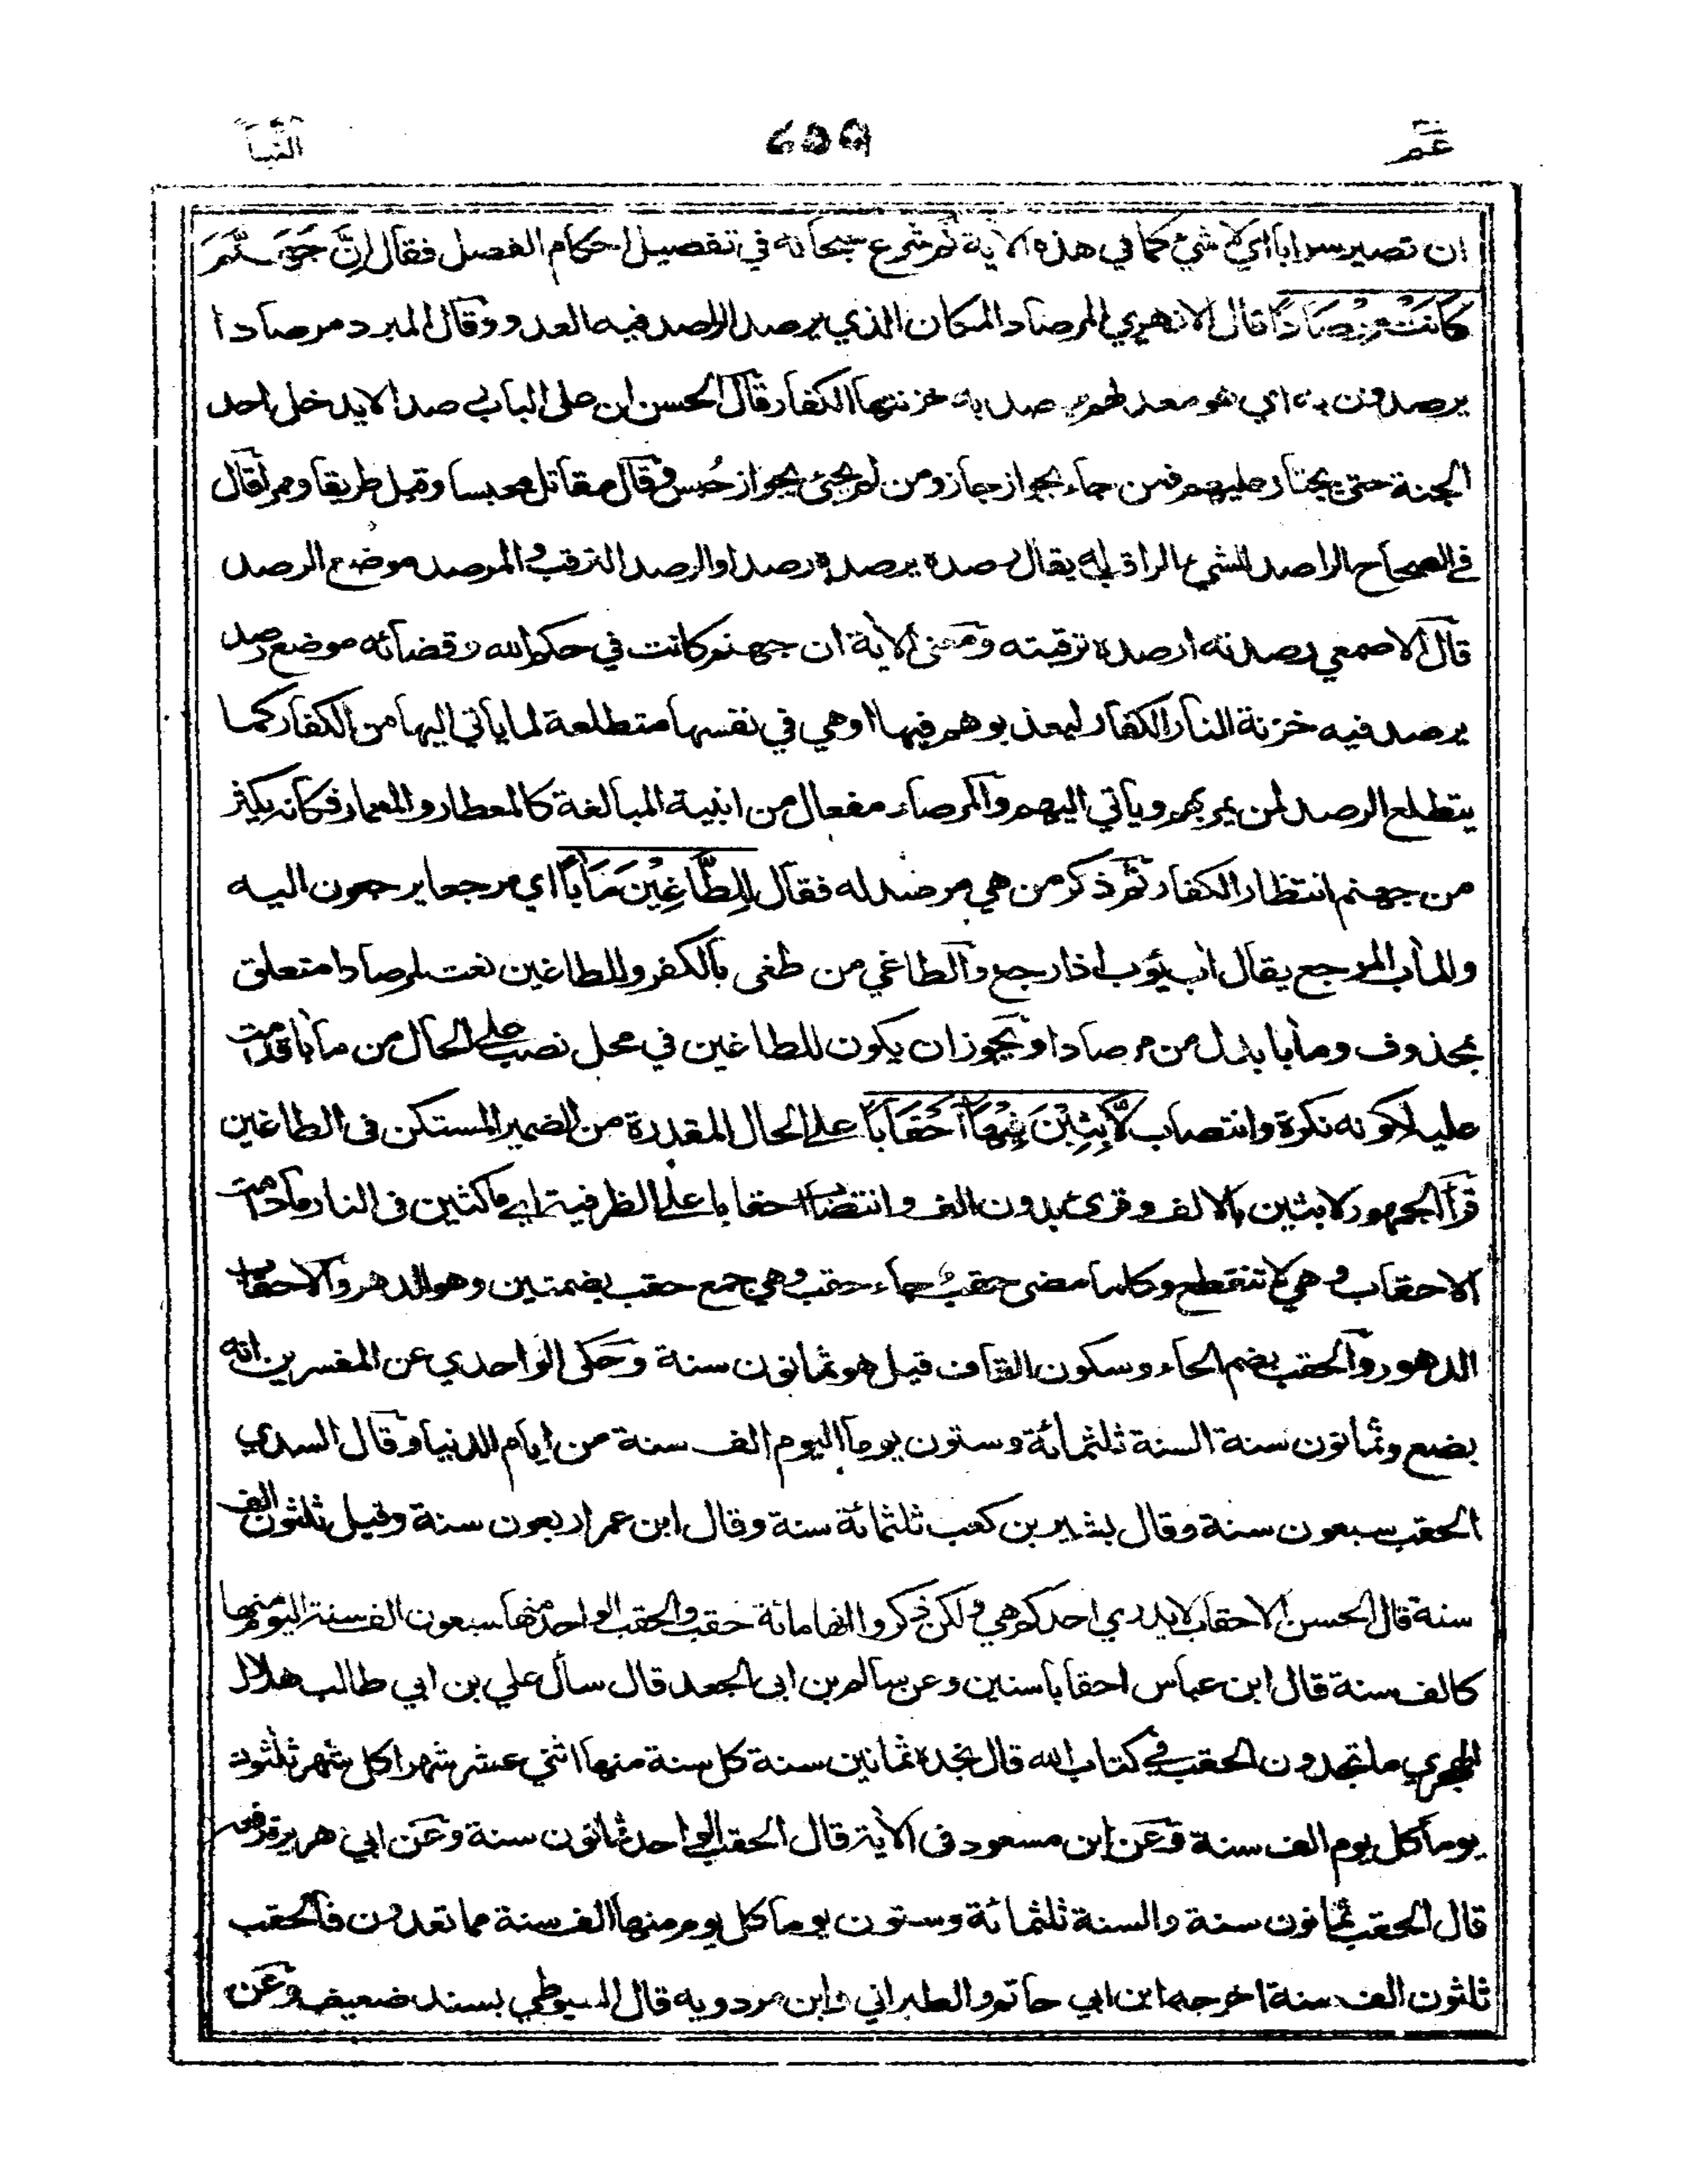 عم
النبأ
ان تصير سرابا اي لا شيء كما في هذه الآية ثم شرع سبحانه في تفصيل احكام الفصل فقال اِنَّ جَهَنَّمَ
كَانَتْ مِرْصَادًا قال الازهري المرصاد المكان الذي يرصد الراصد فيه العدو وقال المبرد مرصادا
يرصدون به اي هو معد لهم يرصد به خزنتها الكفار قال الحسن ان على الباب رصدا لا يدخل احد
الجنة حتى يجتاز عليهم فمن جاء بجواز جاز ومن لم يجئ بجواز حُبس وقال مقاتل محبسا وقيل طريقا وممرا قال
في الصحاح الراصد للشيء الراقب له يقال رصده يرصده رصدا والرصد الترقب والمرصد موضع الرصد
قال الاصمعي رصدته ارصده ترقبته ومعنى الآية ان جهنم كانت في حكم الله وقضائه موضع رصد
يرصد فيه خزنة النار الكفار ليعذبوهم فيها او هي في نفسها متطلعة لما يأتي اليها من الكفار كما
يتطلع الرصد لمن يمر بهم ويأتي اليهم والمرصاد مفعال من ابنية المبالغة كالمعطار والمعمار فكأنه يكثر
من جهنم انتظار الكفار ثم ذكر من هي مرصد له فقال لِلطَّاغِيْنَ مَاٰبًا اي مرجعا يرجعون اليه
والمأب المرجع يقال اٰب يئوب اذا رجع والطاغي من طغى بالكفر وللطاغين نعت لمرصادا متعلق
بمحذوف ومأبا بدل من مرصادا ويجوز ان يكون للطاغين في محل نصب على الحال من مأبا قدمت
عليه لكونه نكرة وانتصاب لّٰبِثِيْنَ فِيْهَآ اَحْقَابًا على الحال المقدرة من الضمير المستكن في الطاغين
قرأ الجمهور لابثين بالالف وقرئ بدون الف وانتصاب احقابا على الظرفية اي ماكثين في النار ما دامت
الاحقاب وهي لا تنقطع وكلما مضى حقب جاء حقب وهي جمع حقب بضمتين وهو الدهر والاحقاب
الدهور والحقب بضم الحاء وسكون القاف قيل هو ثمانون سنة وحكى الواحدي عن المفسرين انه
بضع وثمانون سنة السنة ثلثمائة وستون يوما اليوم الف سنة من ايام الدنيا وقال السدي
الحقب سبعون سنة وقال بشير بن كعب ثلثمائة سنة وقال ابن عمر اربعون سنة وقيل ثلثون الف
سنة قال الحسن الاحقاب لا يدري احد كم هي ولكن ذكروا انها مائة حقب والحقب الواحد منها سبعون الف سنة اليوم منها
كالف سنة قال ابن عباس احقابا سنين وعن سالم بن ابي الجعد قال سأل علي بن ابي طالب هلال
الهجري ما تجدون الحقب في كتاب الله قال نجده ثمانين سنة كل سنة منها اثني عشر شهرا كل شهر ثلثون
يوما كل يوم الف سنة وعن ابن مسعود في الآية قال الحقب الواحد ثمانون سنة وعن ابي هريرة
قال الحقب ثمانون سنة والسنة ثلثمائة وستون يوما كل يوم منها الف سنة مما تعدون فالحقب
ثلثون الف سنة اخرجه ابن ابي حاتم والطبراني وابن مردويه قال السيوطي بسند ضعيف وعن